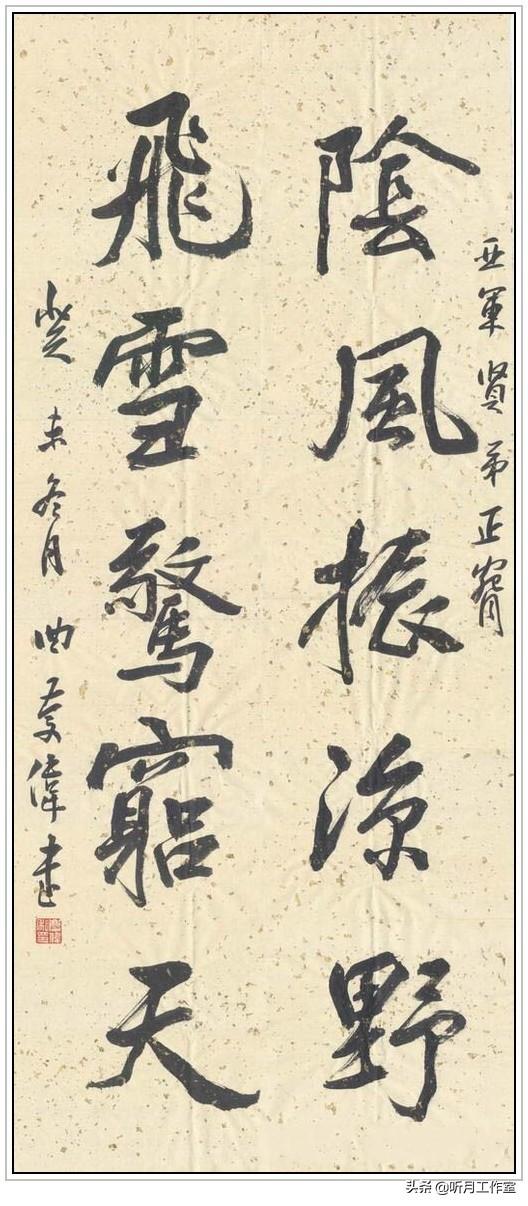 亚軍贤弟正
陰風振涼野
飛雪驚竆天
癸未冬月曲慶偉書
头条 @听月工作室